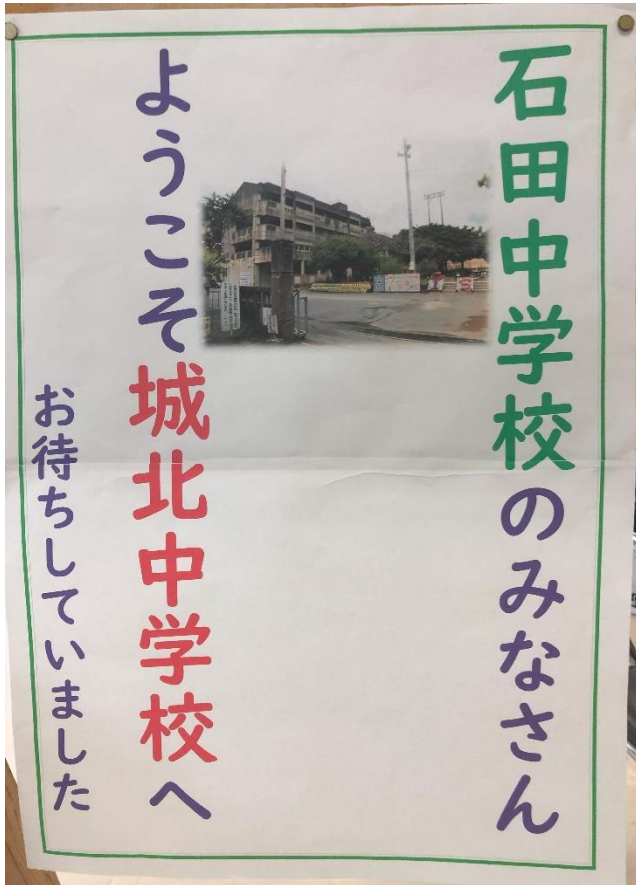 石田中学校のみなさん
ようこそ城北中学校へ
お待ちしていました